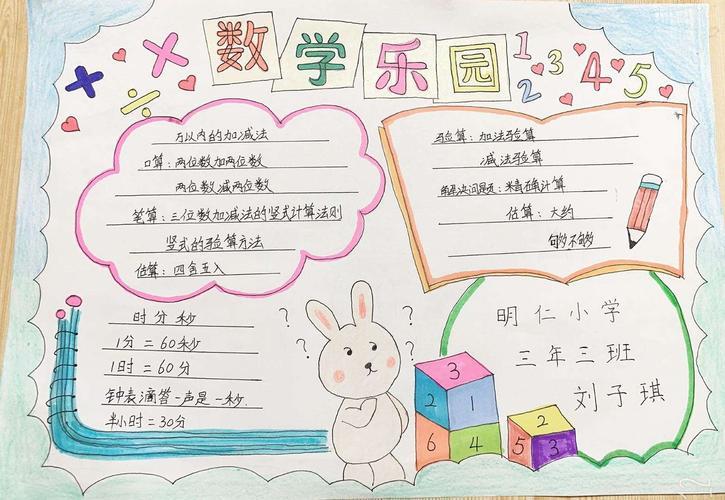 数学乐园
1 2 3 4 5
万以内的加减法
口算：两位数加两位数
两位数减两位数
笔算：三位数加减法的竖式计算法则
竖式的验算方法
估算：四舍五入
验算：加法验算
减法验算
解决问题：精确计算
估算：大约
够不够
时分秒
1分＝60秒
1时＝60分
钟表滴答一声是一秒.
半小时＝30分
? ? ? ? ?
3
2 1
6 4
2
5 3
明仁小学
三年三班
刘子琪